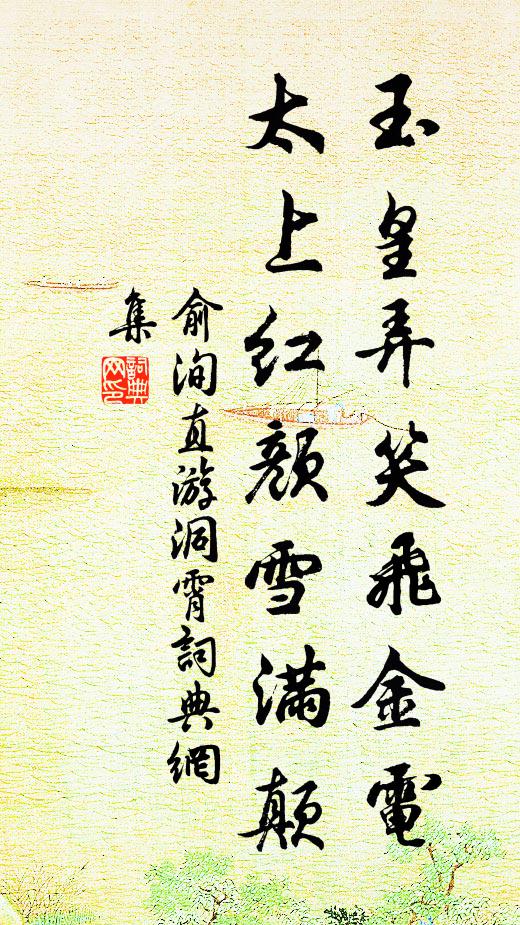 玉皇弄笑飛金電
太上红颜雪满颠
俞洵直游洞霄詞典網
集
詞典
网印